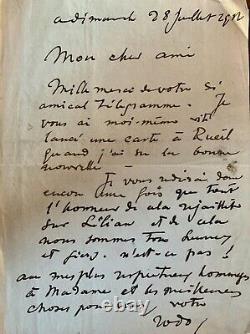 dimanch 28 Juillet 191
Mon cher ami
Mille merci de votre si
amical télégramme. Je
vous ai moi-même vite
lancé une carte à Rueil
quand j'ai su la bonne
nouvelle
Je vous redirai donc
encore une fois que tout
l'honneur de cela rejaillit
sur Lilian et de cela
nous sommes tous heureux
et fiers. n'est-ce pas!
aux mes plus respectueux hommages
à Madame et les meilleures
choses pour vous votre